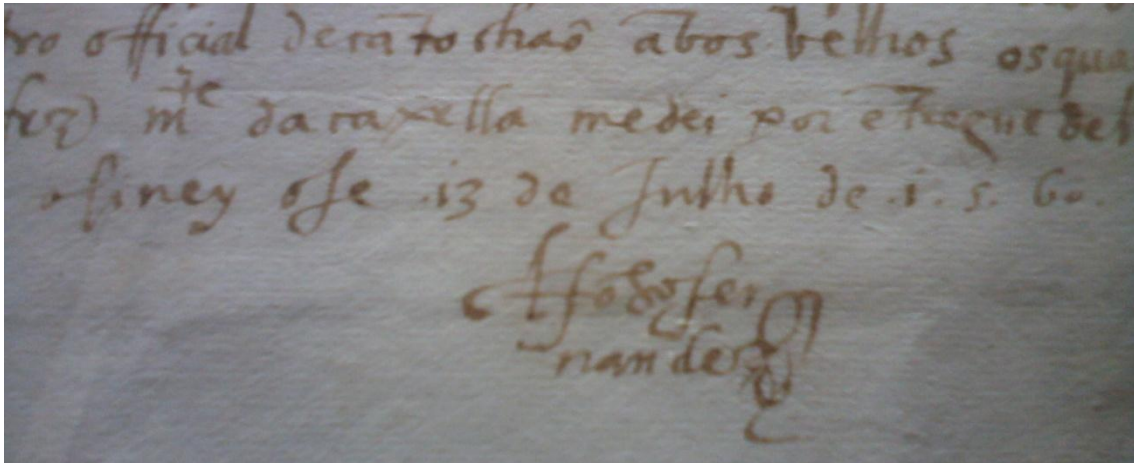 tro official de cãto chaõ ãbos velhos os qua
mte da capella me dei por ẽtregue de
asiney oje .13 de Julho de .1.5.60.
fer
nandez